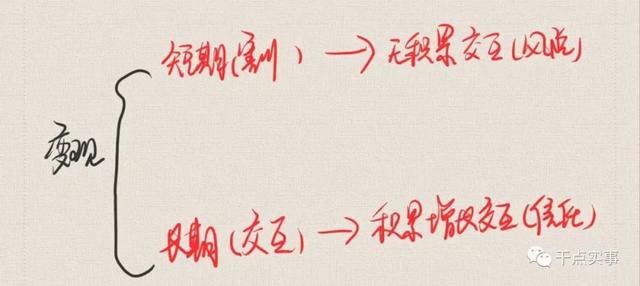 短期(实训) → 无积累交互(风点)
变现
长期(交互) → 积累增收交互(信任)
干点实事